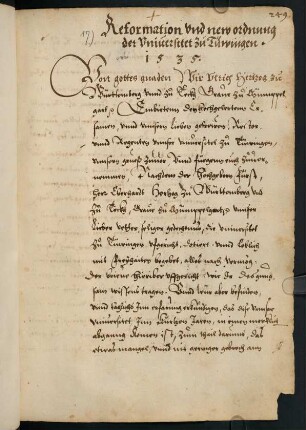 249.
17)
Reformation vnd new ordnung
der Vniuersitet zu Tüwingen.
1535.
Von gottes gnaden Wir Vlrich Hertzog zu
Württemberg vnd zu Teckh Graue zu Mümppel
gart Embietten den Hochgelerten Er=
samen, vnd vnsern lieben getrewen, Rector
vnd Regenten vnser vniuersitet zu Tüwingen,
vnsern grus zuuor. Vnd fuegen euch
Nachdem der Hochgeborn Fürst,
Herr Eberhardt Hertzog zu Württemberg vnd
zu Teckh, Graue zu Mümppelgartt, vnser
lieber vetter seliger gedechtnus, die vniuersitet
zu Tüwingen vffgericht, dotiert vnd loblich
mit begabt, alles nach vermög
der darüber vffgericht wir
wissens tragen. Vnnd wir aber befinden,
vnd täglichs Inn erfarung erkundigen, das dise vnser
Vniuersitet Inn kurtzen Jaren, in einen mercklichen
abgang komen ist, zum theil darumb, das
etwas mangel vnd nit geringer gebrech ann